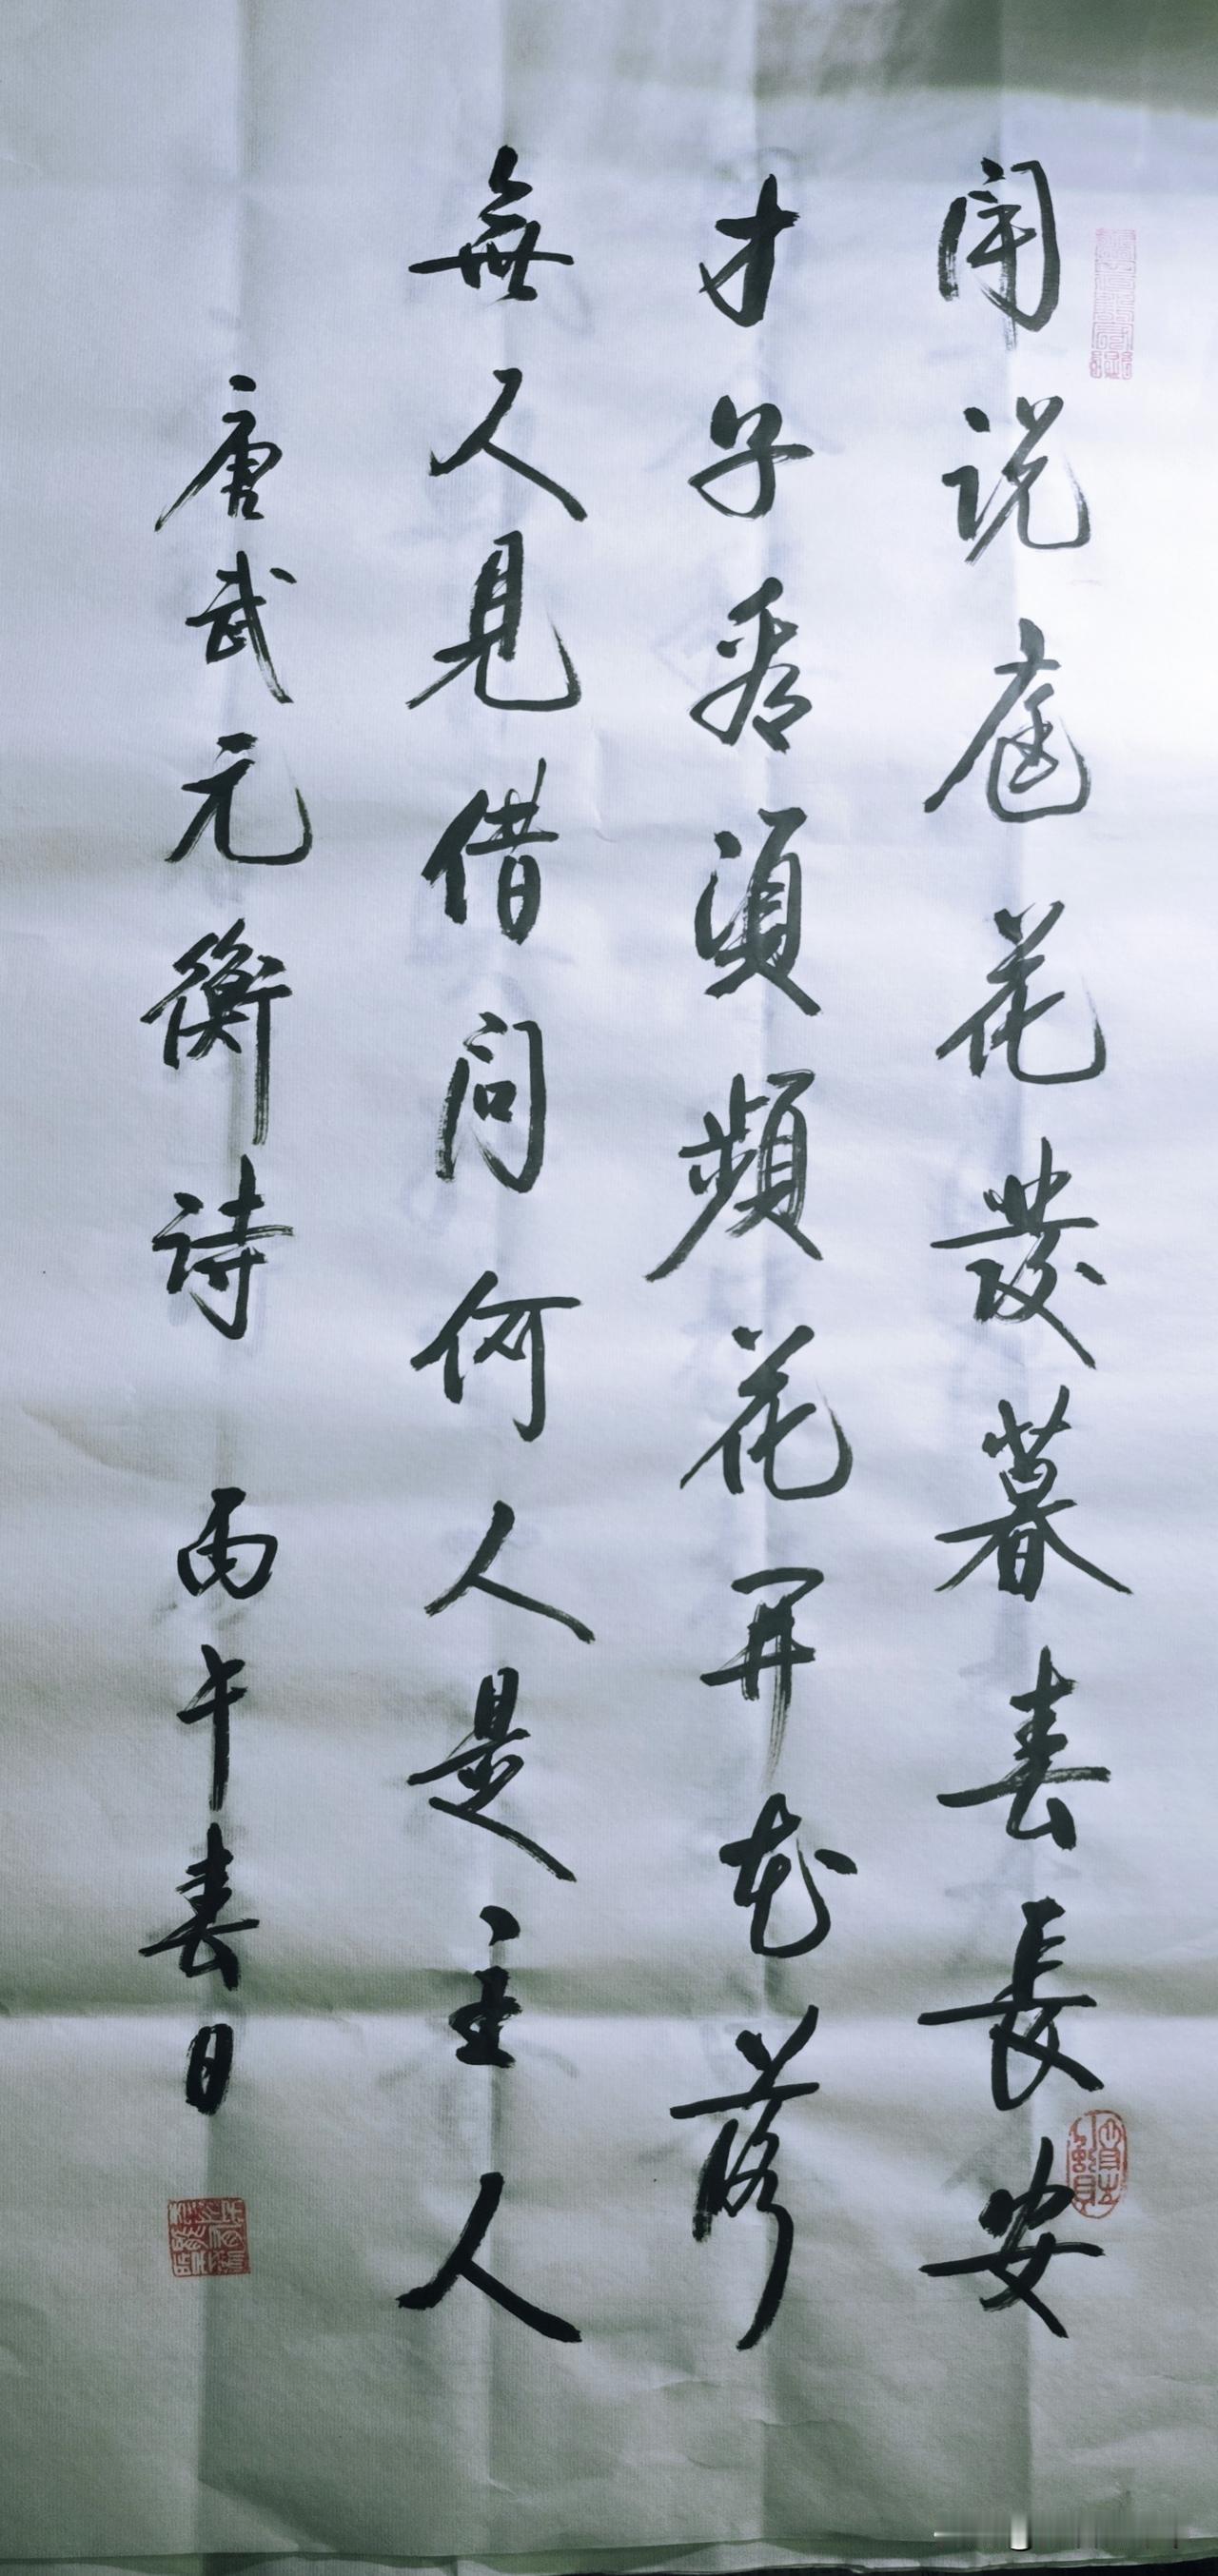 闻说庭花發暮春長安
才子看須頻花开花落
無人見借问何人是主人
唐武元衡诗 丙午春日